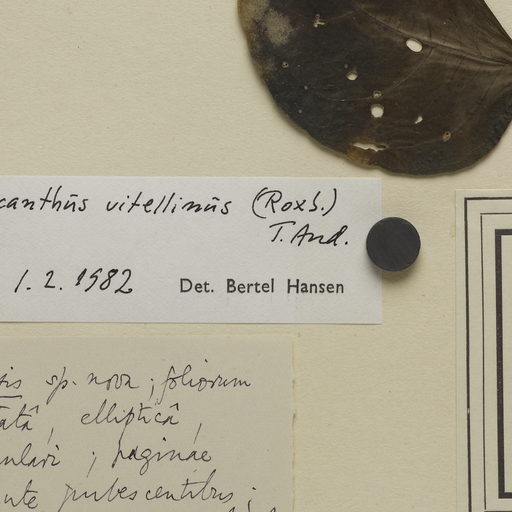 canthūs vitellinūs (Roxb.)
T. And.
1. 2. 1982 Det. Bertel Hansen
sis sp. nova ; foliorum
atâ, elliptică,
ulari ; paginae
nte pubescentibus ;